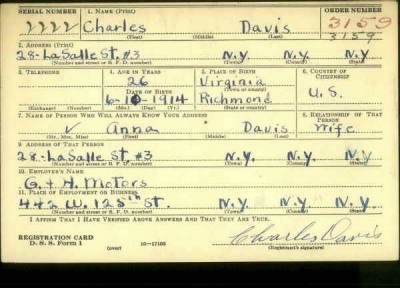 SERIAL NUMBER 1. NAME (Print) ORDER NUMBER
2222 Charles Davis 3159
(First) (Middle) (Last) 3159
2. ADDRESS (Print)
28-LaSalle St. #3 N.Y. N.Y. N.Y.
(Number and street or R. F. D. number) (Town) (County) (State)
3. TELEPHONE 4. AGE IN YEARS 5. PLACE OF BIRTH 6. COUNTRY OF CITIZENSHIP
26 Virginia
DATE OF BIRTH (Town or county)
6-10-1914 Richmond U.S.
(Exchange) (Number) (Mo.) (Day) (Yr.) (State or country)
7. NAME OF PERSON WHO WILL ALWAYS KNOW YOUR ADDRESS 8. RELATIONSHIP OF THAT PERSON
Anna Davis Wife
(Mr., Mrs., Miss) (First) (Middle) (Last)
9. ADDRESS OF THAT PERSON
28-LaSalle St #3 N.Y. N.Y. N.Y.
(Number and street or R. F. D. number) (Town) (County) (State)
10. EMPLOYER'S NAME
G. & H. Motors
11. PLACE OF EMPLOYMENT OR BUSINESS
442 W. 125th St. N.Y. N.Y. N.Y.
(Number and street or R. F. D. number) (Town) (County) (State)
I AFFIRM THAT I HAVE VERIFIED ABOVE ANSWERS AND THAT THEY ARE TRUE.
REGISTRATION CARD
D. S. S. Form 1 (over) 16-17105 Charles Davis
(Registrant's signature)